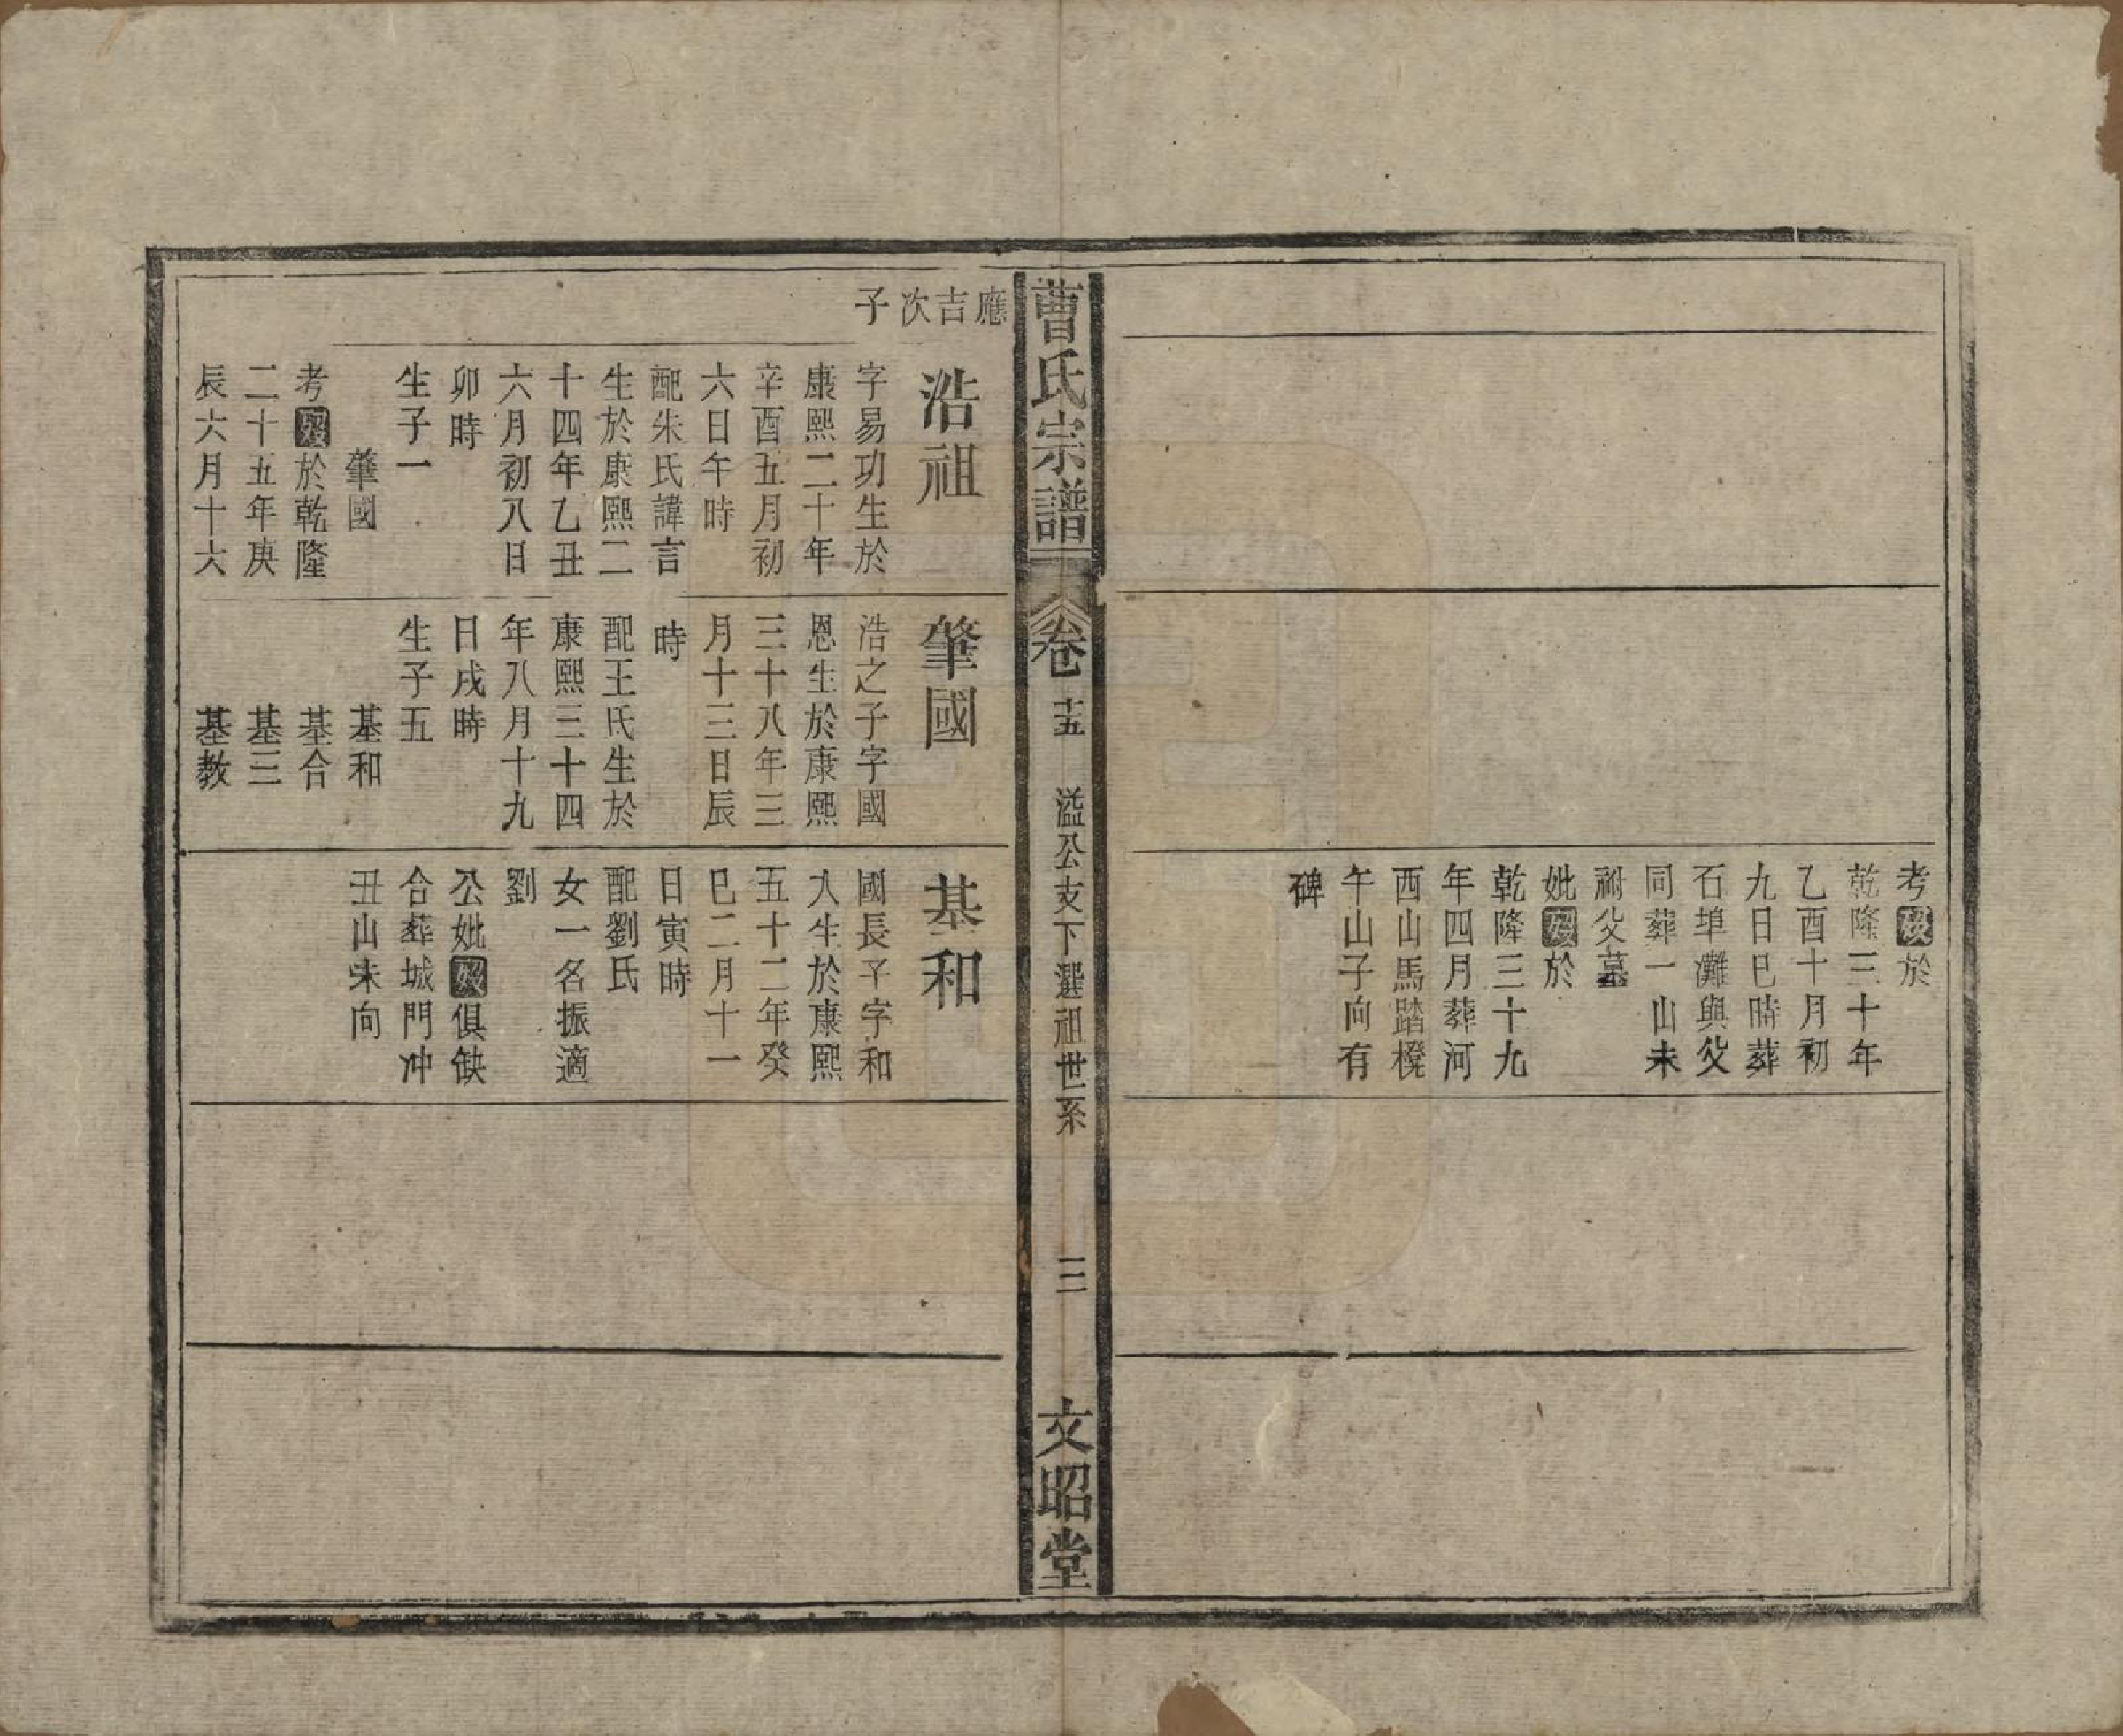 考歿於
乾隆三十年
乙酉十月初
九日巳時葬
石埠灘與父
同葬一山未
祔父墓
妣歿於
乾隆三十九
年四月葬河
西山馬踏櫈
午山子向有
碑
曹氏宗譜
卷
十五
溢公支下選祖世系
三
文昭堂
應吉次子
浩祖
字易功生於
康熙二十年
辛酉五月初
六日午時
配朱氏諱言
生於康熙二
十四年乙丑
六月初八日
卯時
生子一
肇國
考歿於乾隆
二十五年庚
辰六月十六
肇國
浩之子字國
恩生於康熙
三十八年三
月十三日辰
時
配王氏生於
康熙三十四
年八月十九
日戌時
生子五
基和
基合
基三
基教
基和
國長子字和
入生於康熙
五十二年癸
巳二月十一
日寅時
配劉氏
女一名振適
劉
公妣歿俱缺
合葬城門冲
丑山未向